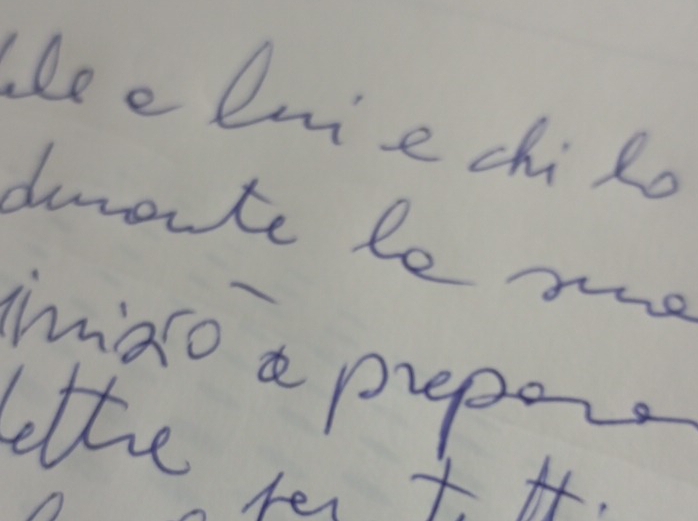 a lui e chi lo
durante la sua
iniziò a
lettre
per tutti